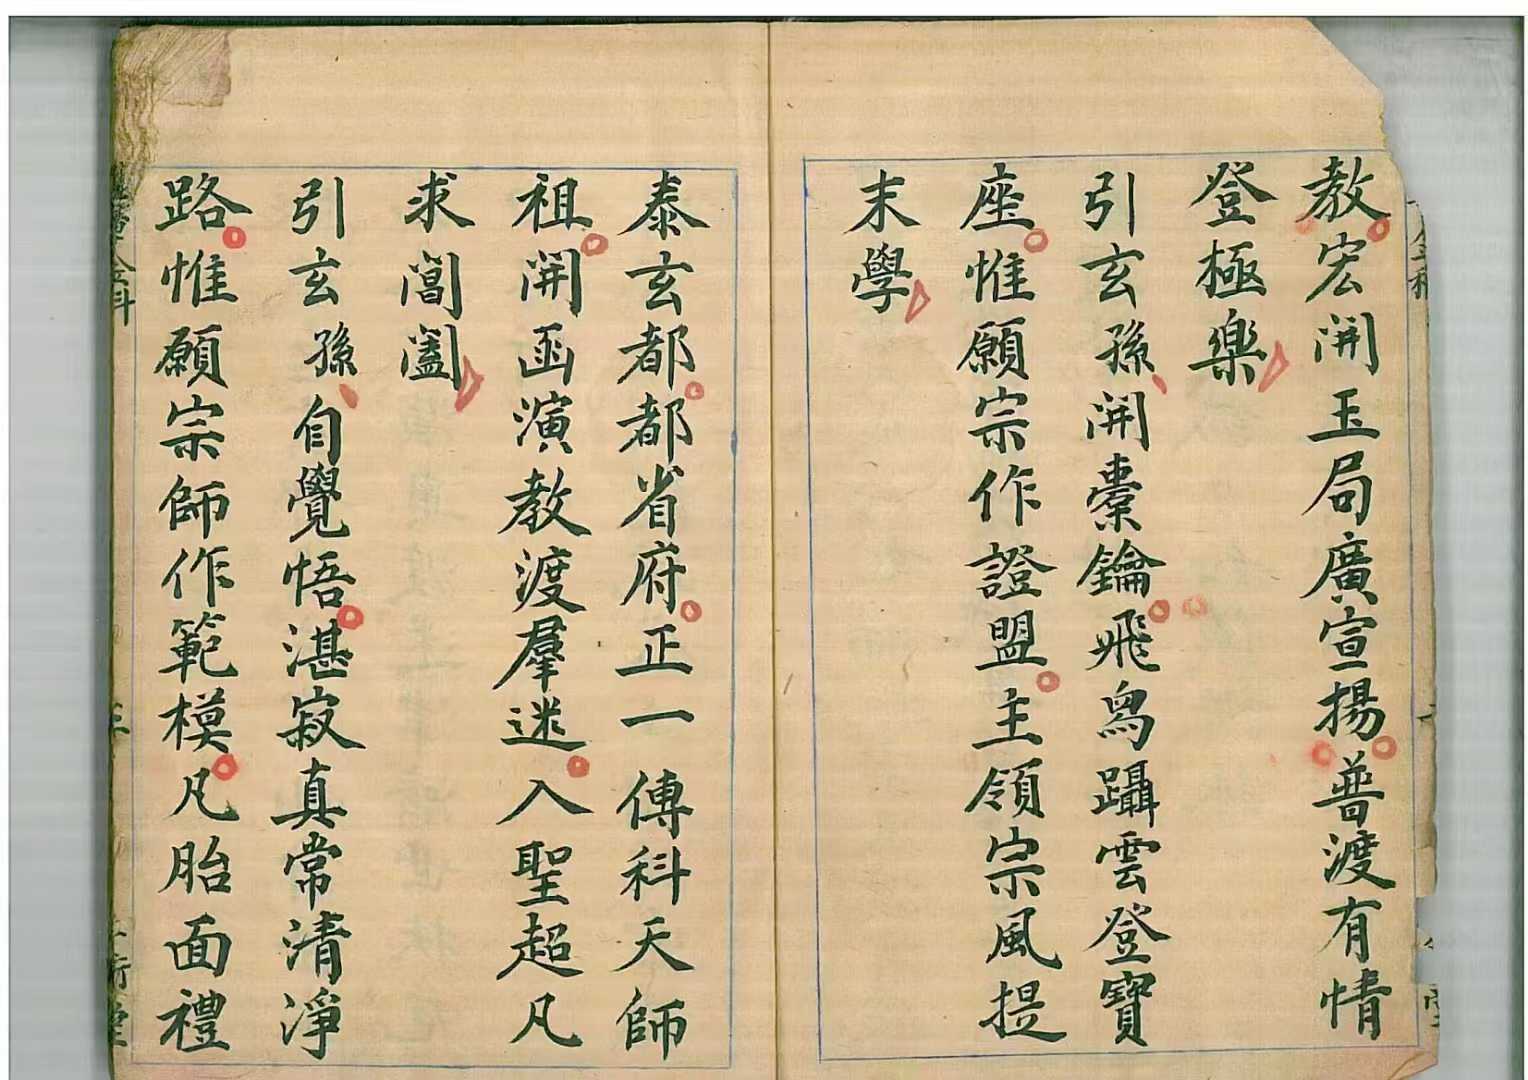 教宏開玉局廣宣揚普渡有情
登極樂
引玄孫開橐鑰飛舄躡雲登寶
座惟願宗作證盟主領宗風提
末學
泰玄都都省府正一傳科天師
祖開函演教渡羣迷入聖超凡
求閶闔
引玄孫自覺悟湛寂真常清淨
路惟願宗師作範模凡胎面禮